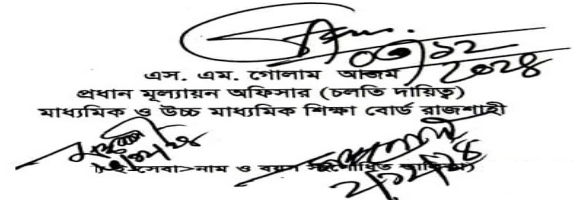 ০৩/১২/২০২৪
এস. এম. গোলাম আজম
প্রধান মূল্যায়ন অফিসার (চলতি দায়িত্ব)
মাধ্যমিক ও উচ্চ মাধ্যমিক শিক্ষা বোর্ড রাজশাহী
সেবা>নাম ও বয়স
২/১২/২৪